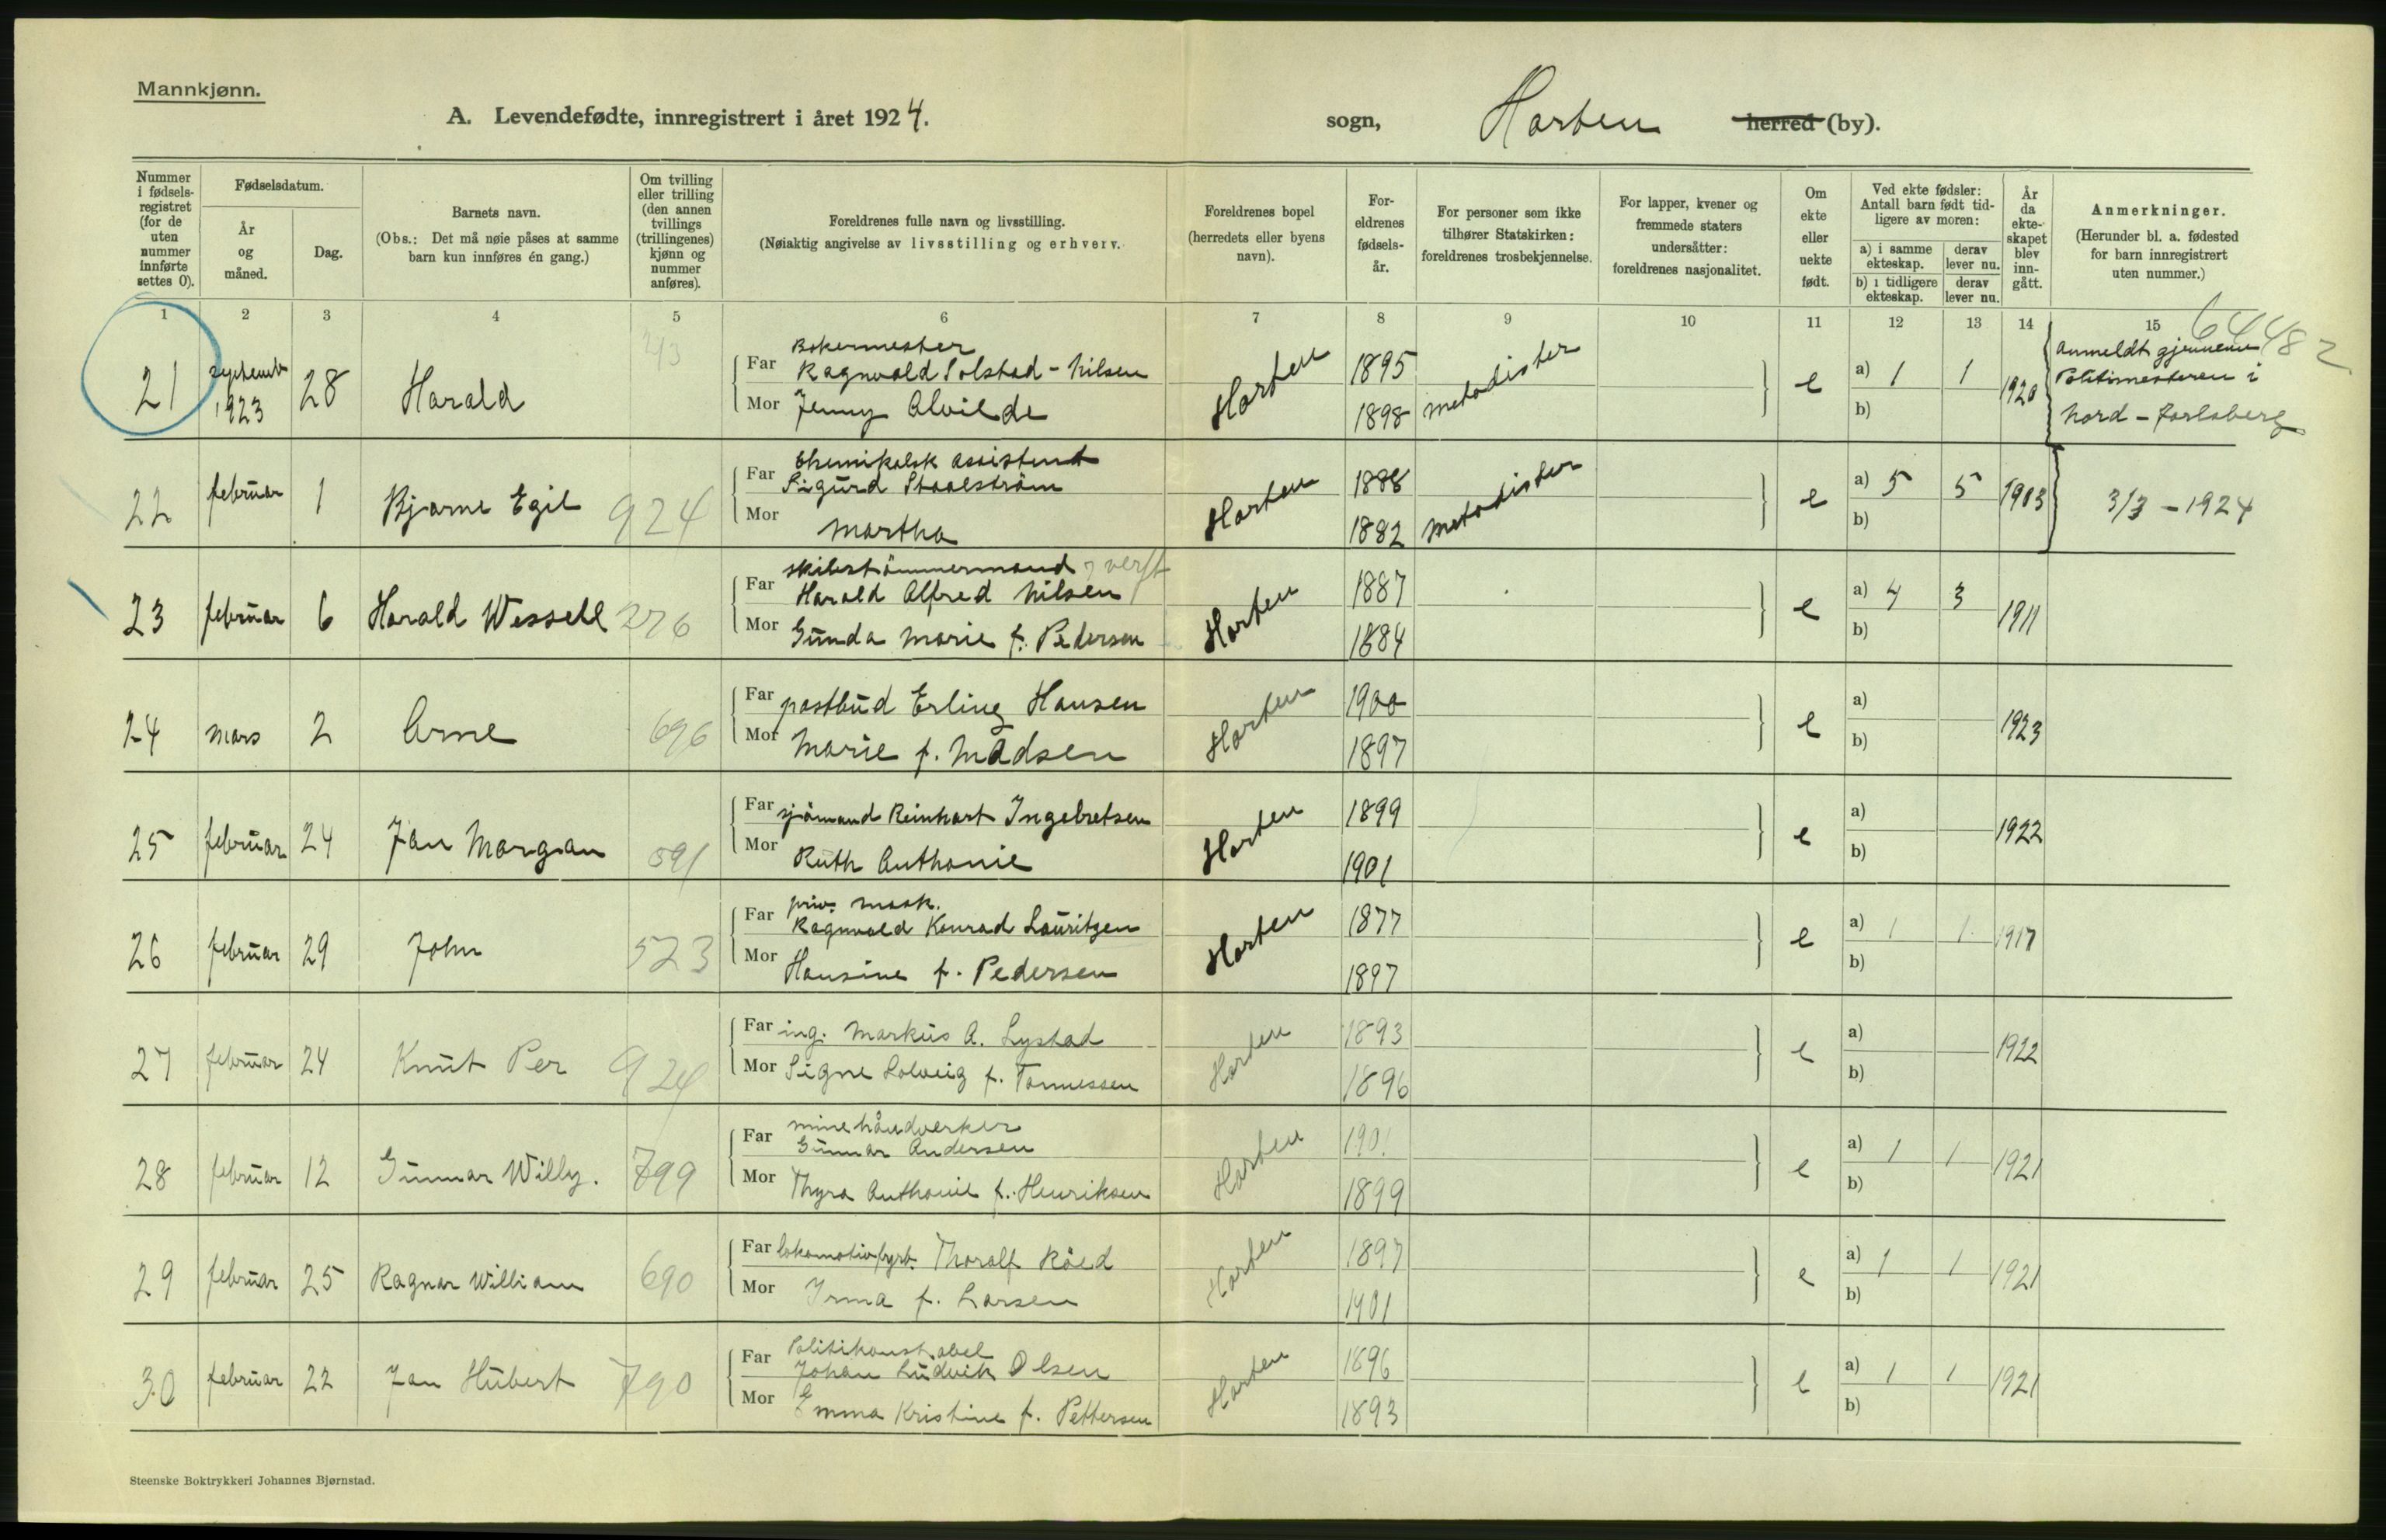 Mannkjønn.
A. Levendefødte, innregistrert i året 1924. sogn, Horten herred (by).
Nummer i fødsels-registret (for de uten nummer innførte settes 0).
Fødselsdatum.
År og måned.
Dag.
Barnets navn.
(Obs.: Det må nøie påses at samme barn kun innføres én gang.)
Om tvilling eller trilling (den annen tvillings (trillingenes) kjønn og nummer anføres).
Foreldrenes fulle navn og livsstilling.
(Nøiaktig angivelse av livsstilling og erhverv.
Foreldrenes bopel (herredets eller byens navn).
For-eldrenes fødsels-år.
For personer som ikke tilhører Statskirken: foreldrenes trosbekjennelse.
For lapper, kvener og fremmede staters undersåtter: foreldrenes nasjonalitet.
Om ekte eller uekte født.
Ved ekte fødsler: Antall barn født tid-ligere av moren:
a) i samme ekteskap. derav lever nu.
b) i tidligere ekteskap. derav lever nu.
År da ekte-skapet blev inn-gått.
Anmerkninger.
(Herunder bl. a. fødested for barn innregistrert uten nummer.)
1 2 3 4 5 6 7 8 9 10 11 12 13 14 15
64482
21 septemb 1923 28 Harald 213
Far Bakermester Ragnvald Solstad-Nilsen Horten 1895 metodister e a) 1 1 1920 anmeldt gjennem
Politimesteren i
Mor Jenny Alvilde 1898 b) Nord-Jarlsberg
22 februar 1 Bjarne Egil 924
Far Chemikalsk assistent Sigurd Staalström Horten 1888 metodister e a) 5 5 1903 3/3 - 1924
Mor Martha 1882 b)
23 februar 6 Harald Wessell 276
Far skibstömmermand verft Harald Alfred Nilsen Horten 1887 e a) 4 3 1911
Mor Gunda Marie f. Pedersen 1884 b)
24 mars 2 Arne 696
Far postbud Erling Hansen Horten 1900 e a) 1923
Mor Marie f. Madsen 1897 b)
25 februar 24 Jan Margan 591
Far sjömand Reinhart Ingebretsen Horten 1899 e a) 1922
Mor Ruth Anthonie 1901 b)
26 februar 29 John 523
Far priv. mask. Ragnvald Konrad Lauritzen Horten 1877 e a) 1 1 1917
Mor Hansine f. Pedersen 1897 b)
27 februar 24 Knut Per 924
Far ing. Markus A. Lystad Horten 1893 e a) 1922
Mor Signe Solveig f. Tønnessen 1896 b)
28 februar 12 Gunnar Willy. 799
Far minehåndverker Gunnar Andersen Horten 1901 e a) 1 1 1921
Mor Thyra Anthonie f. Henriksen 1899 b)
29 februar 25 Ragnar William 690
Far lokomotivfyrb. Thoralf Röed Horten 1897 e a) 1 1 1921
Mor Irma f. Larsen 1901 b)
30 februar 22 Jan Hubert 790
Far Politikonstabel Johan Ludvik Olsen Horten 1896 e a) 1 1 1921
Mor Emma Kristine f. Pettersen 1893 b)
Steenske Boktrykkeri Johannes Bjørnstad.